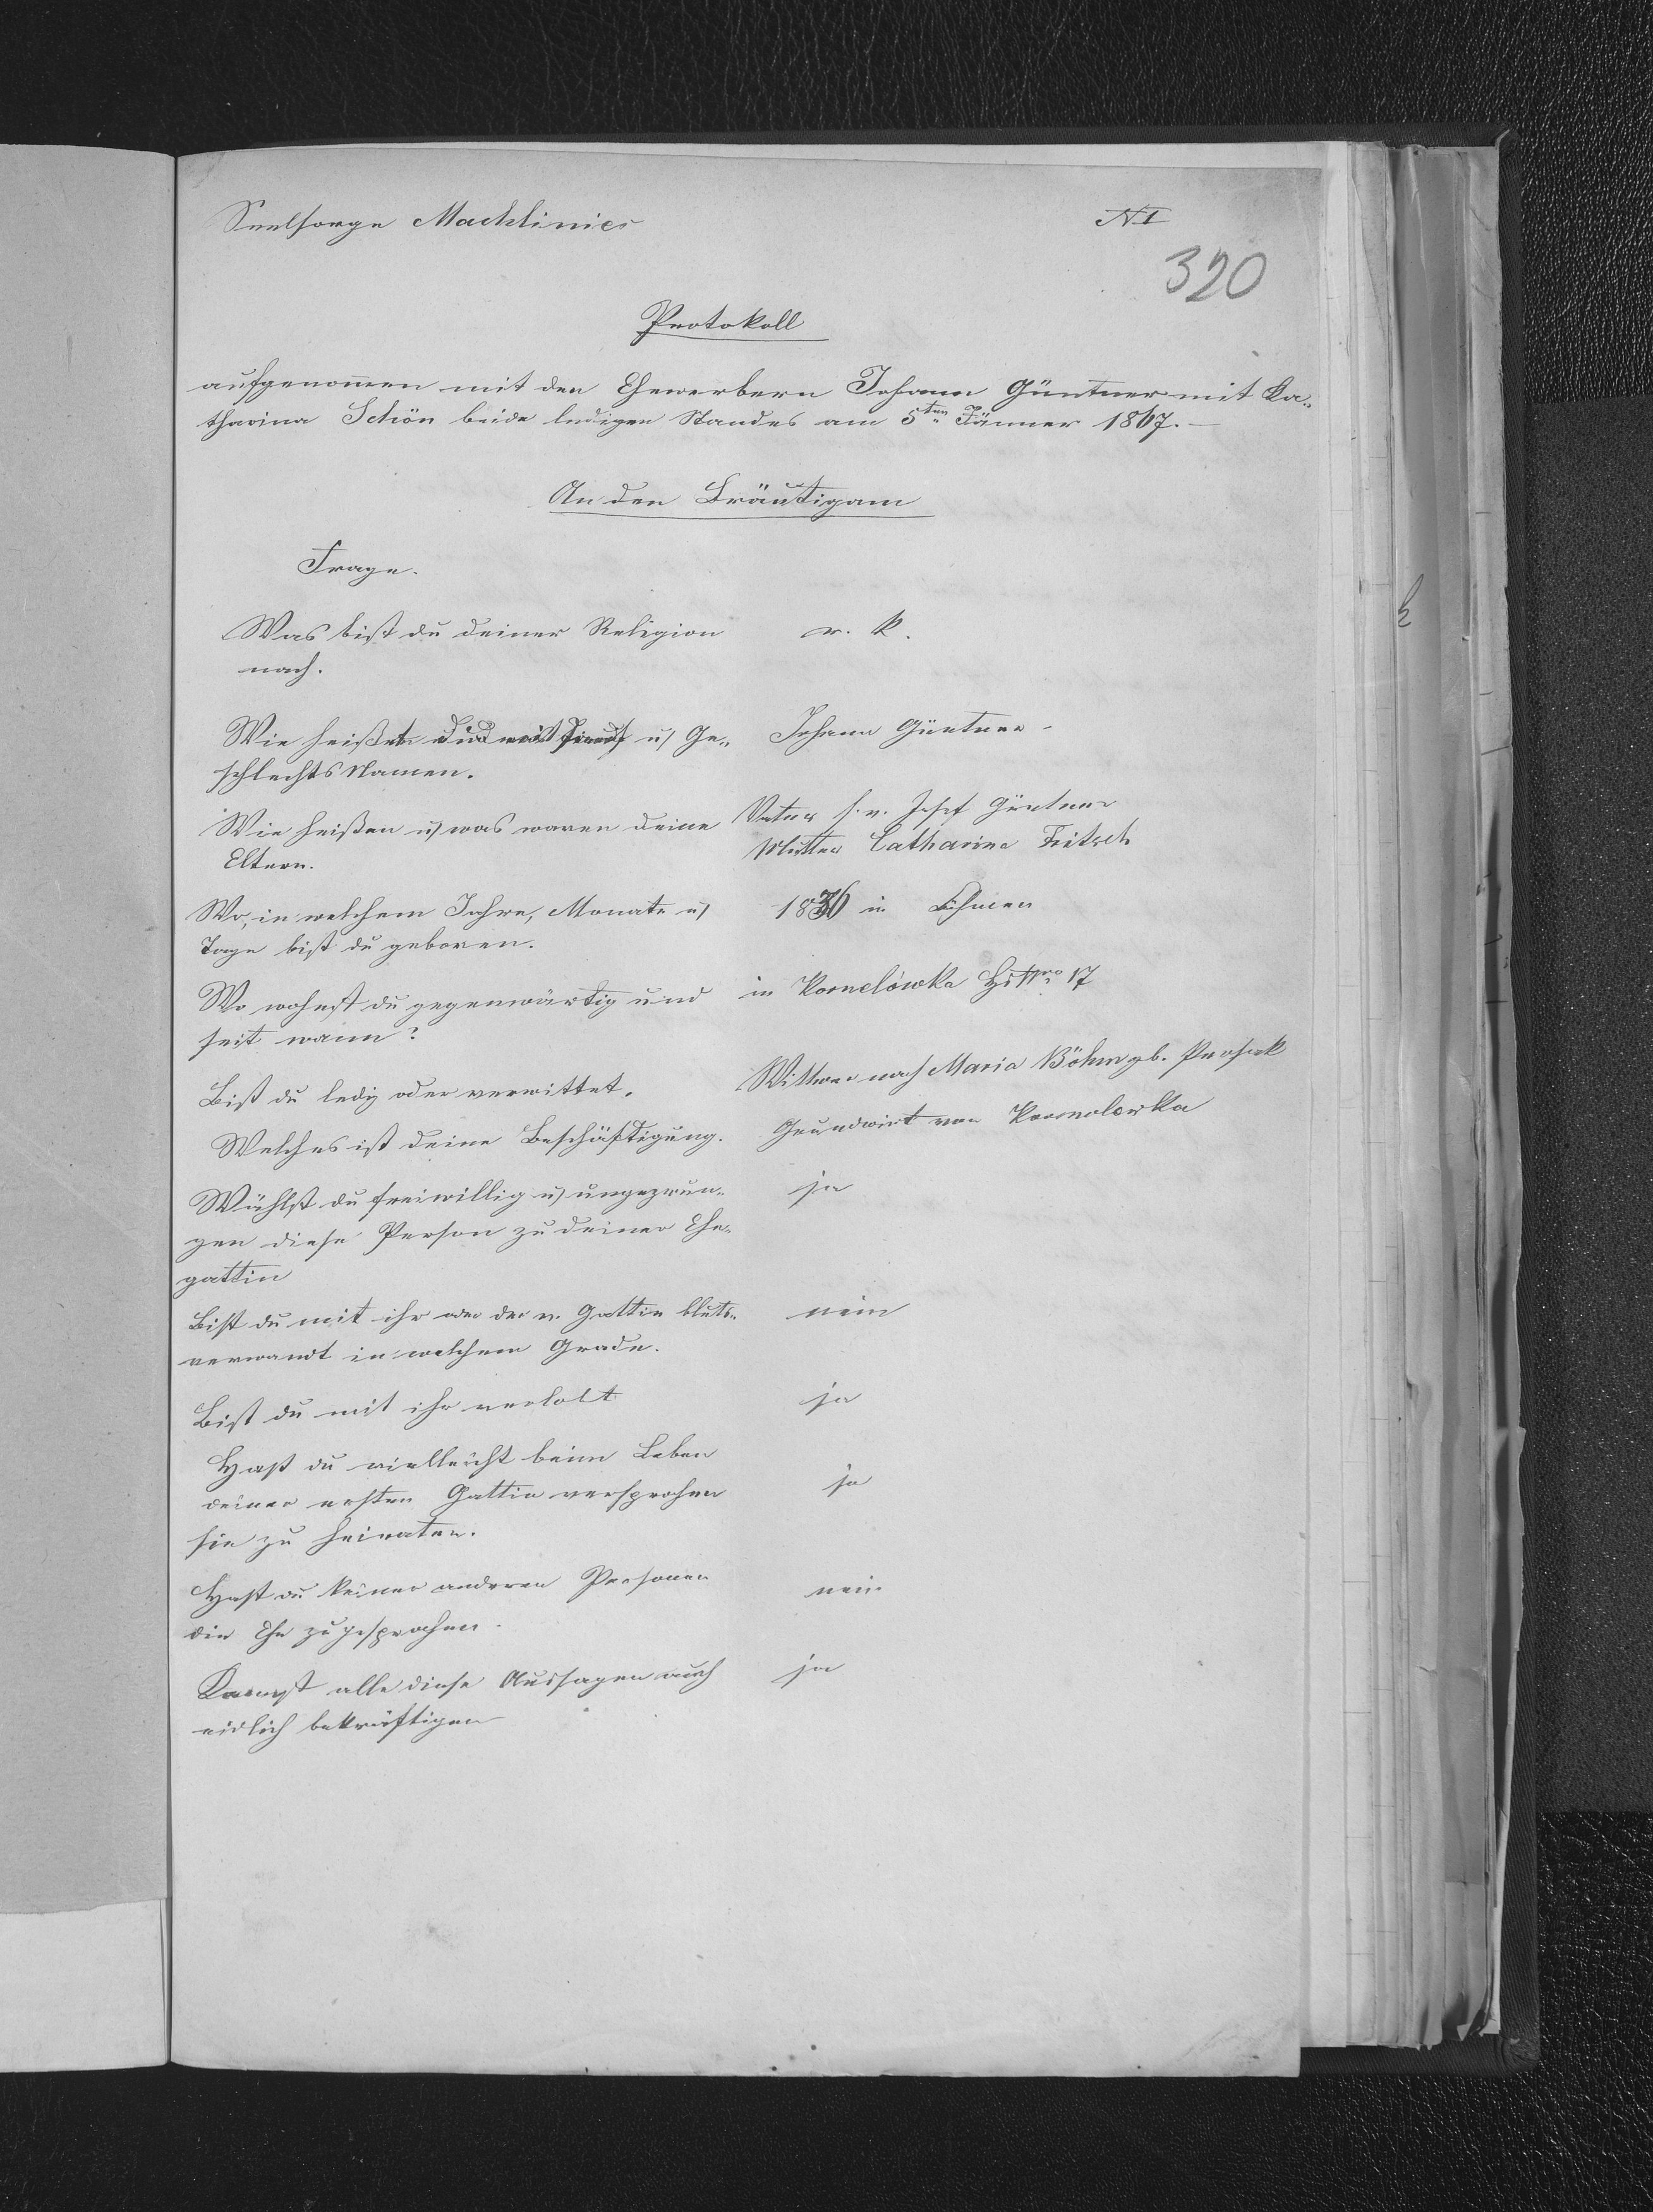 Seelsorge Machlinies
N I
320
Protokoll
aufgenommen mit den Ehewerbern Johann Güntner mit Ka„
tharina Schön beide ledigen Standes am 5ten Jänner 1867.—
An den Bräutigam
Frage.
Was bist du deiner Religion r. k.
nach.
Wie heißt du mit u Ge„ Johann Güntner -
schlechts Namen.
Wie heißen u was waren deine Vater h. v. Josef Güntner
Eltern. Mutter Catharina Fritsch
Wo, in welchem Jahre, Monate u 1836 in
Tage bist du geboren.
Wo wohnst du gegenwärtig und in Kornelówka HsNro 17
seit wann?
Bist du ledig oder verwittet. Wittwer nach Maria Böhm gb. Prosak
Welches ist deine Beschäftigung. Grundwirt von Kornelowka
Wählst du freiwillig u ungezwun„ ja
gen diese Person zu deiner Ehe„
gattin
Bist du mit ihr oder der v. Gattin bluts„ nein
verwandt in welchem Grade.
Bist du mit ihr verlobt ja
Hast du vielleicht beim Leben
deiner ersten Gattin versprochen ja
sie zu heiraten.
Hast du keiner anderen Personen nein
die Ehe zugesprochen.
Kannst alle diese Aussagen auch ja
eidlich bekräftigen